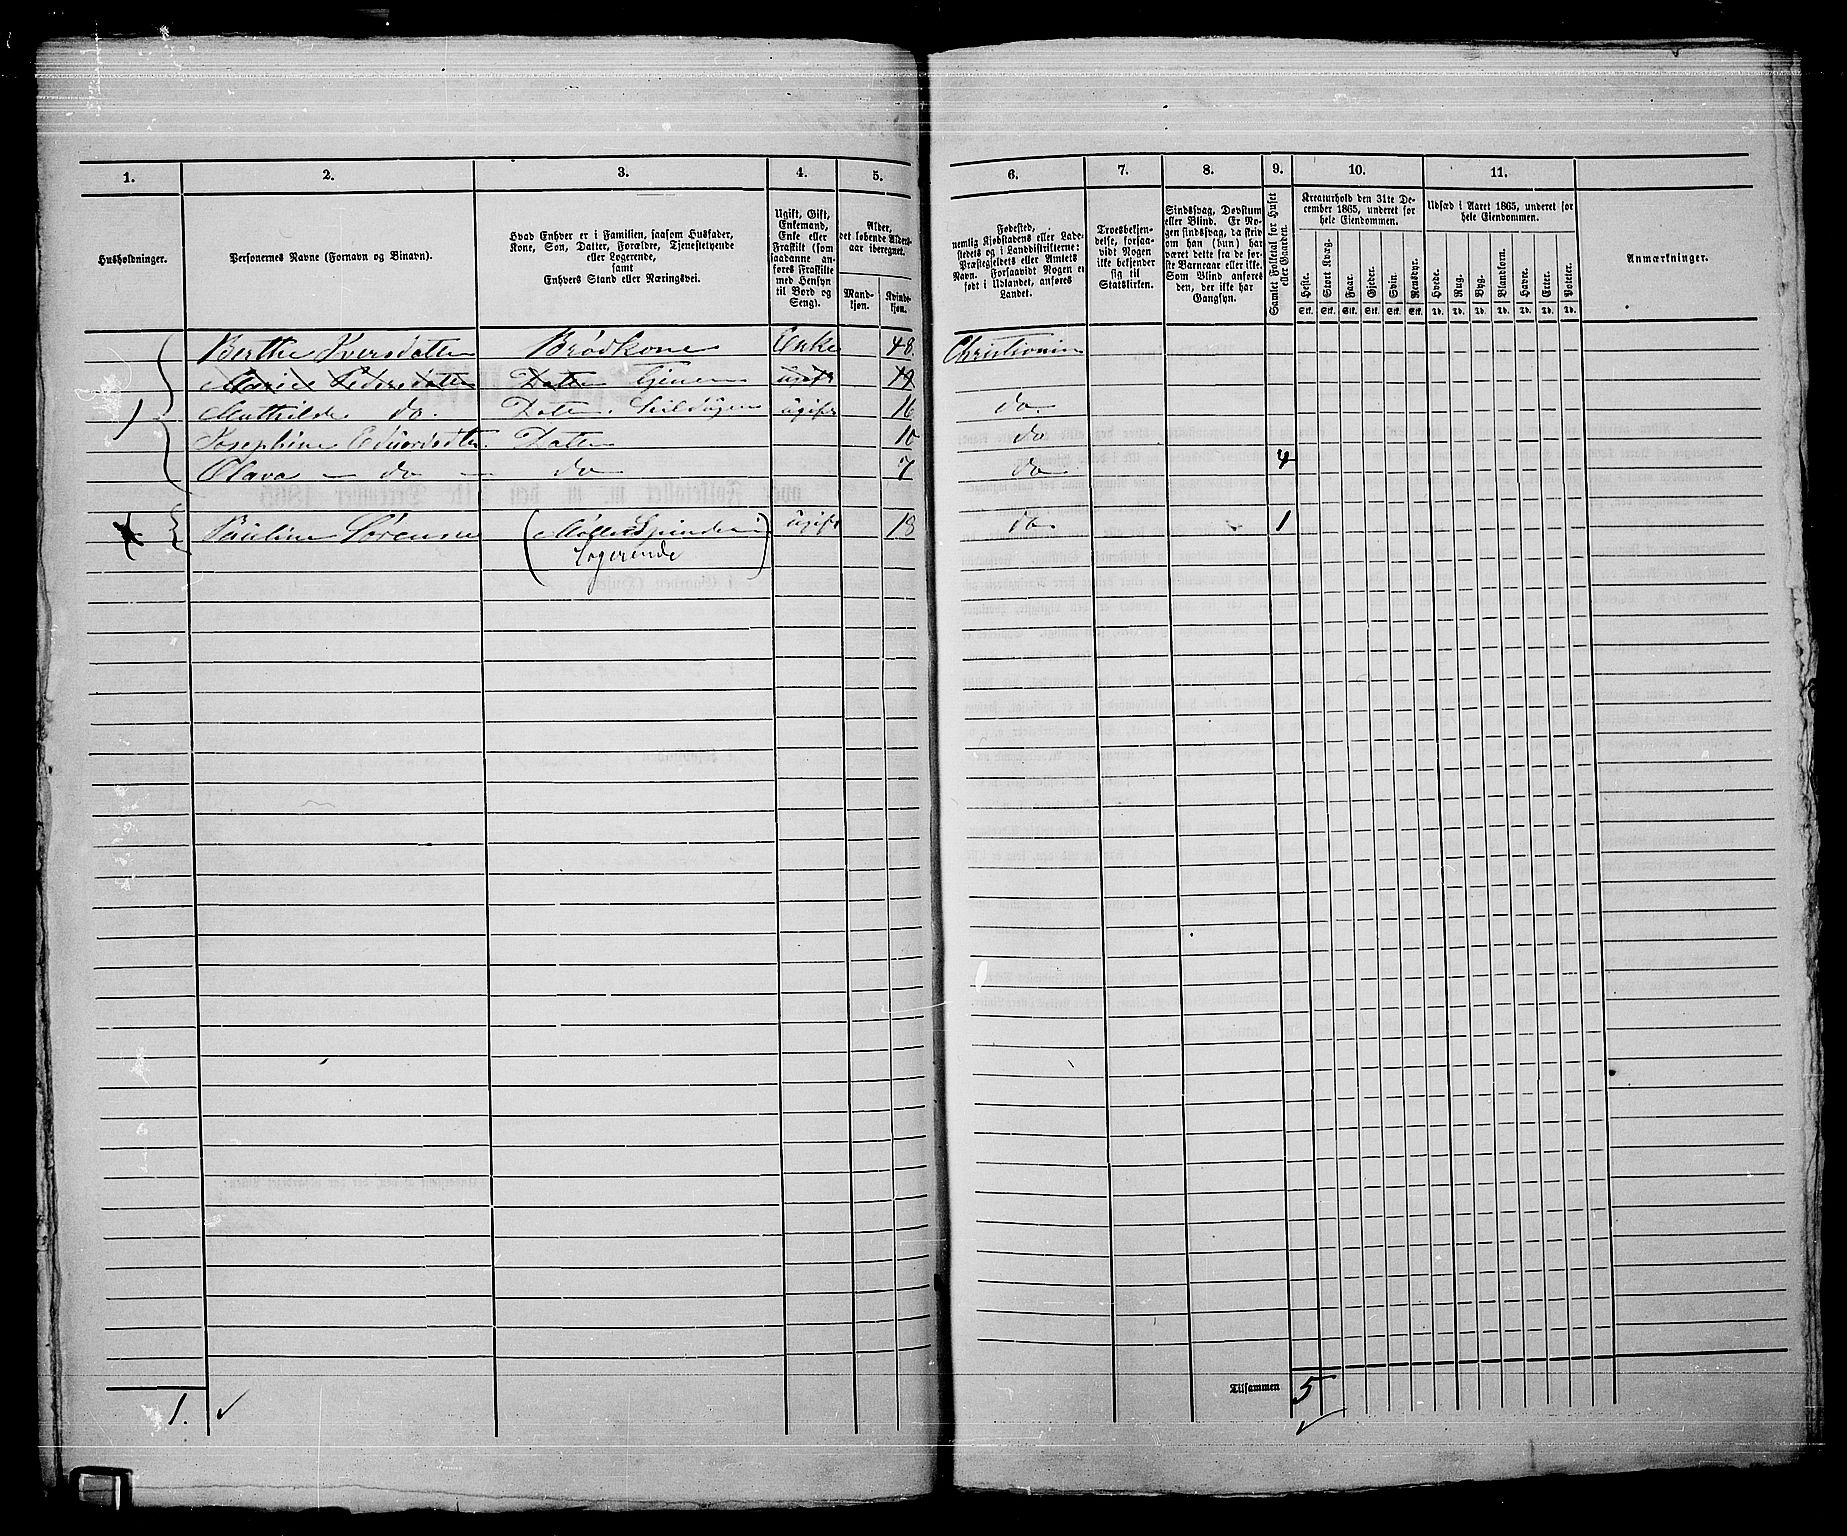 1. 2. 3. 4. 5. 6. 7. 8. 9. 10. 11.
Husholdninger.
Personernes Navne (Fornavn og Binavn).
Hvad Enhver er i Familien, saasom Husfader,
Kone, Søn, Datter, Forældre, Tjenestetyende
eller Logerende,
samt
Enhvers Stand eller Næringsvei.
Ugift, Gift,
Enkemand,
Enke eller
Fraskilt (som
saadanne an-
føres Fraskilte
med Hensyn
til Bord og
Seng).
Alder,
det løbende Alders-
aar iberegnet.
Mand-
kjøn.
Kvinde-
kjøn.
Fødested,
nemlig Kjøbstadens eller Lade-
stedets og i Landdistrikterne:
Præstegjeldets eller Amtets
Navn. Forsaavidt Nogen er
født i Udlandet, anføres
Landet.
Troesbekjen-
delse, forsaa-
vidt Nogen
ikke bekjender
sig til
Statskirken.
Sindssvag, Døvstum
eller Blind. Er No-
gen sindssvag, da skriv
om han (hun) har
været dette fra de før-
ste Barneaar eller ikke.
Som Blind anføres
den, der ikke har
Gangsyn.
Samlet Folketal for Huset
eller Gaarden.
Kreaturhold den 31te De-
cember 1865, underet for
hele Eiendommen.
Heste. Stort Kvæg. Faar. Gjeder. Svin. Rensdyr.
Stk. Stk. Stk. Stk. Stk. Stk.
Udsæd i Aaret 1865, underet for
hele Eiendommen.
Hvede. Rug. Byg. Blandkorn. Havre. Erter. Poteter.
Td. Td. Td. Td. Td. Td. Td.
Anmærkninger.
Berthe Iversdatter Brødkone Enke 48. Christiania
Marie Pedersdatter Datter tjener ugift 19
1 Mathilde do. Datter. ugift 16 do.
Josephine Datter 10 do
Olava — do — do 7 do 4
Pauline Sørensen (Mølle Spinderi ugift 18 do 1
Logerende)
Tilsammen 5
1.